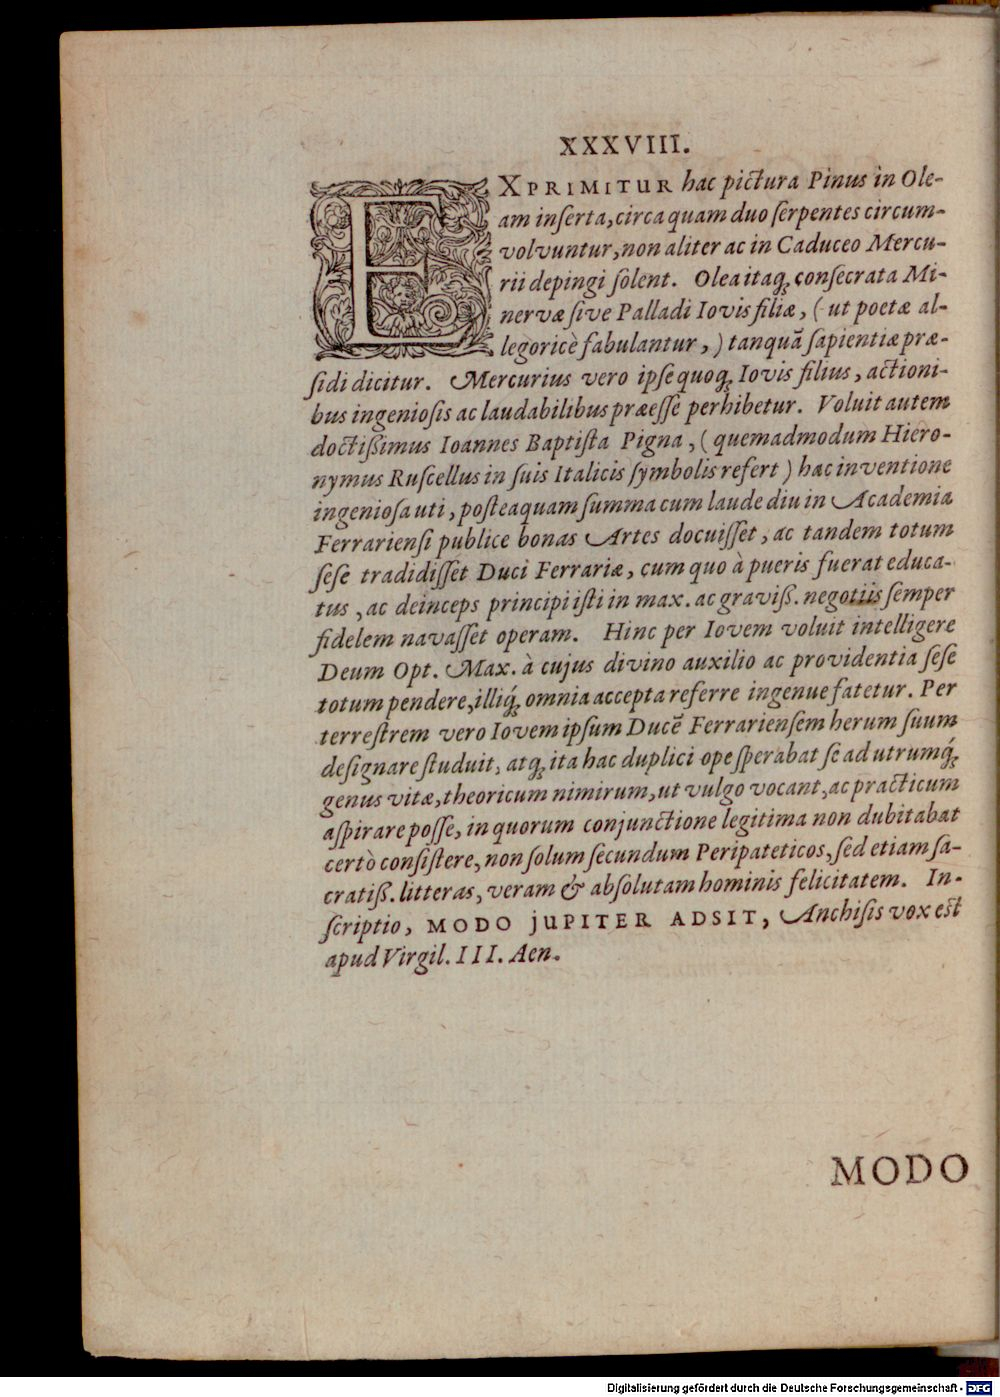 XXXVIII.
EXPRIMITUR hac pictura Pinus in Ole-
am inſerta, circa quam duo ſerpentes circum-
volvuntur, non aliter ac in Caduceo Mercu-
rii depingi ſolent. Olea itaq; conſecrata Mi-
nervæ ſive Palladi Iovis filiæ, (ut poetæ al-
legoricè fabulantur,) tanquã ſapientiæ præ-
ſidi dicitur. Mercurius vero ipſe quoq; Iovis filius, actioni-
bus ingenioſis ac laudabilibus præeſſe perhibetur. Voluit autem
doctißimus Ioannes Baptiſta Pigna, (quemadmodum Hiero-
nymus Ruſcellus in ſuis Italicis ſymbolis refert) hac inventione
ingenioſa uti, poſteaquam ſumma cum laude diu in Academia
Ferrarienſi publice bonas Artes docuiſſet, ac tandem totum
ſeſe tradidiſſet Duci Ferrariæ, cum quo à pueris fuerat educa-
tus, ac deinceps principi iſti in max. ac graviß. negotiis ſemper
fidelem navaſſet operam. Hinc per Iovem voluit intelligere
Deum Opt. Max. à cujus divino auxilio ac providentia ſeſe
totum pendere, illiq́; omnia accepta referre ingenue fatetur. Per
terreſtrem vero Iovem ipſum Ducẽ Ferrarienſem herum ſuum
deſignare ſtuduit, atq; ita hac duplici ope ſperabat ſe ad utrumq́;
genus vitæ, theoricum nimirum, ut vulgo vocant, ac practicum
aſpirare poſſe, in quorum conjunctione legitima non dubitabat
certò conſiſtere, non ſolum ſecundum Peripateticos, ſed etiam ſa-
cratiß. litteras, veram & abſolutam hominis felicitatem. In-
ſcriptio, MODO jUPITER ADSIT, Anchiſis vox eſt
apud Virgil. III. Aen.
MODO
Digitalisierung gefördert durch die Deutsche Forschungsgemeinschaft - DFG